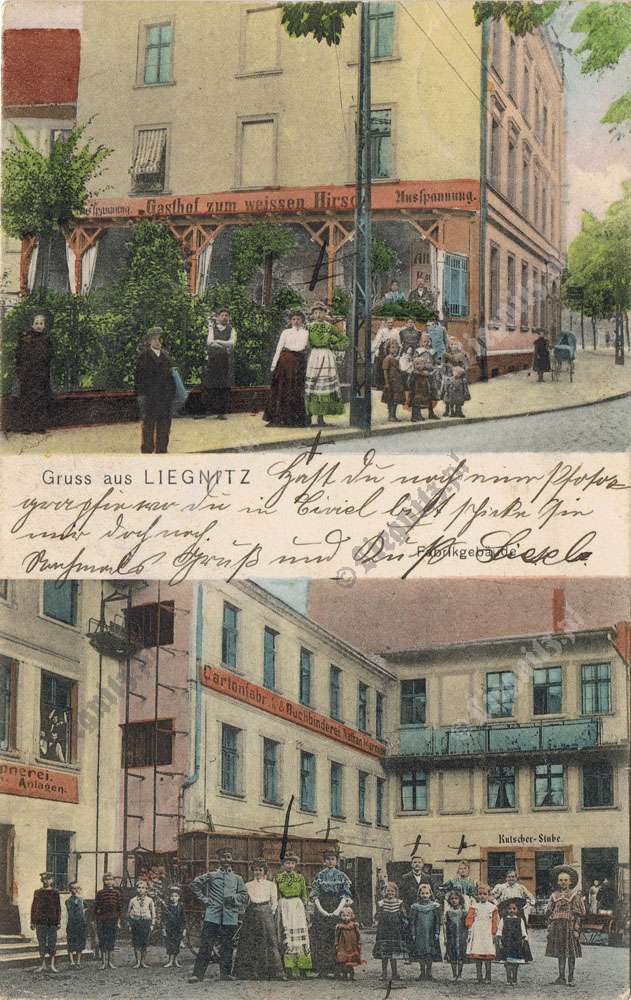 Ausspannung. Gasthof zum weissen Hirsch Ausspannung.
Gruss aus LIEGNITZ
Hast du noch eine Photo-
graphie wo du in Civiel bist schicke Sie
mir doch noch.
Nochmals Gruß und Kuß Liesel.
Fabrikgebäude
Cartonfabr. & Buchbinderei Nathan
pnerei.
Anlagen.
Kutscher-Stube.